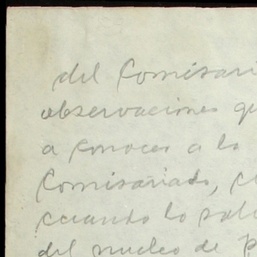 del Comisari
observaciones qu
a conocer a lo
Comisariado, c
cuando lo
del nucleo de p